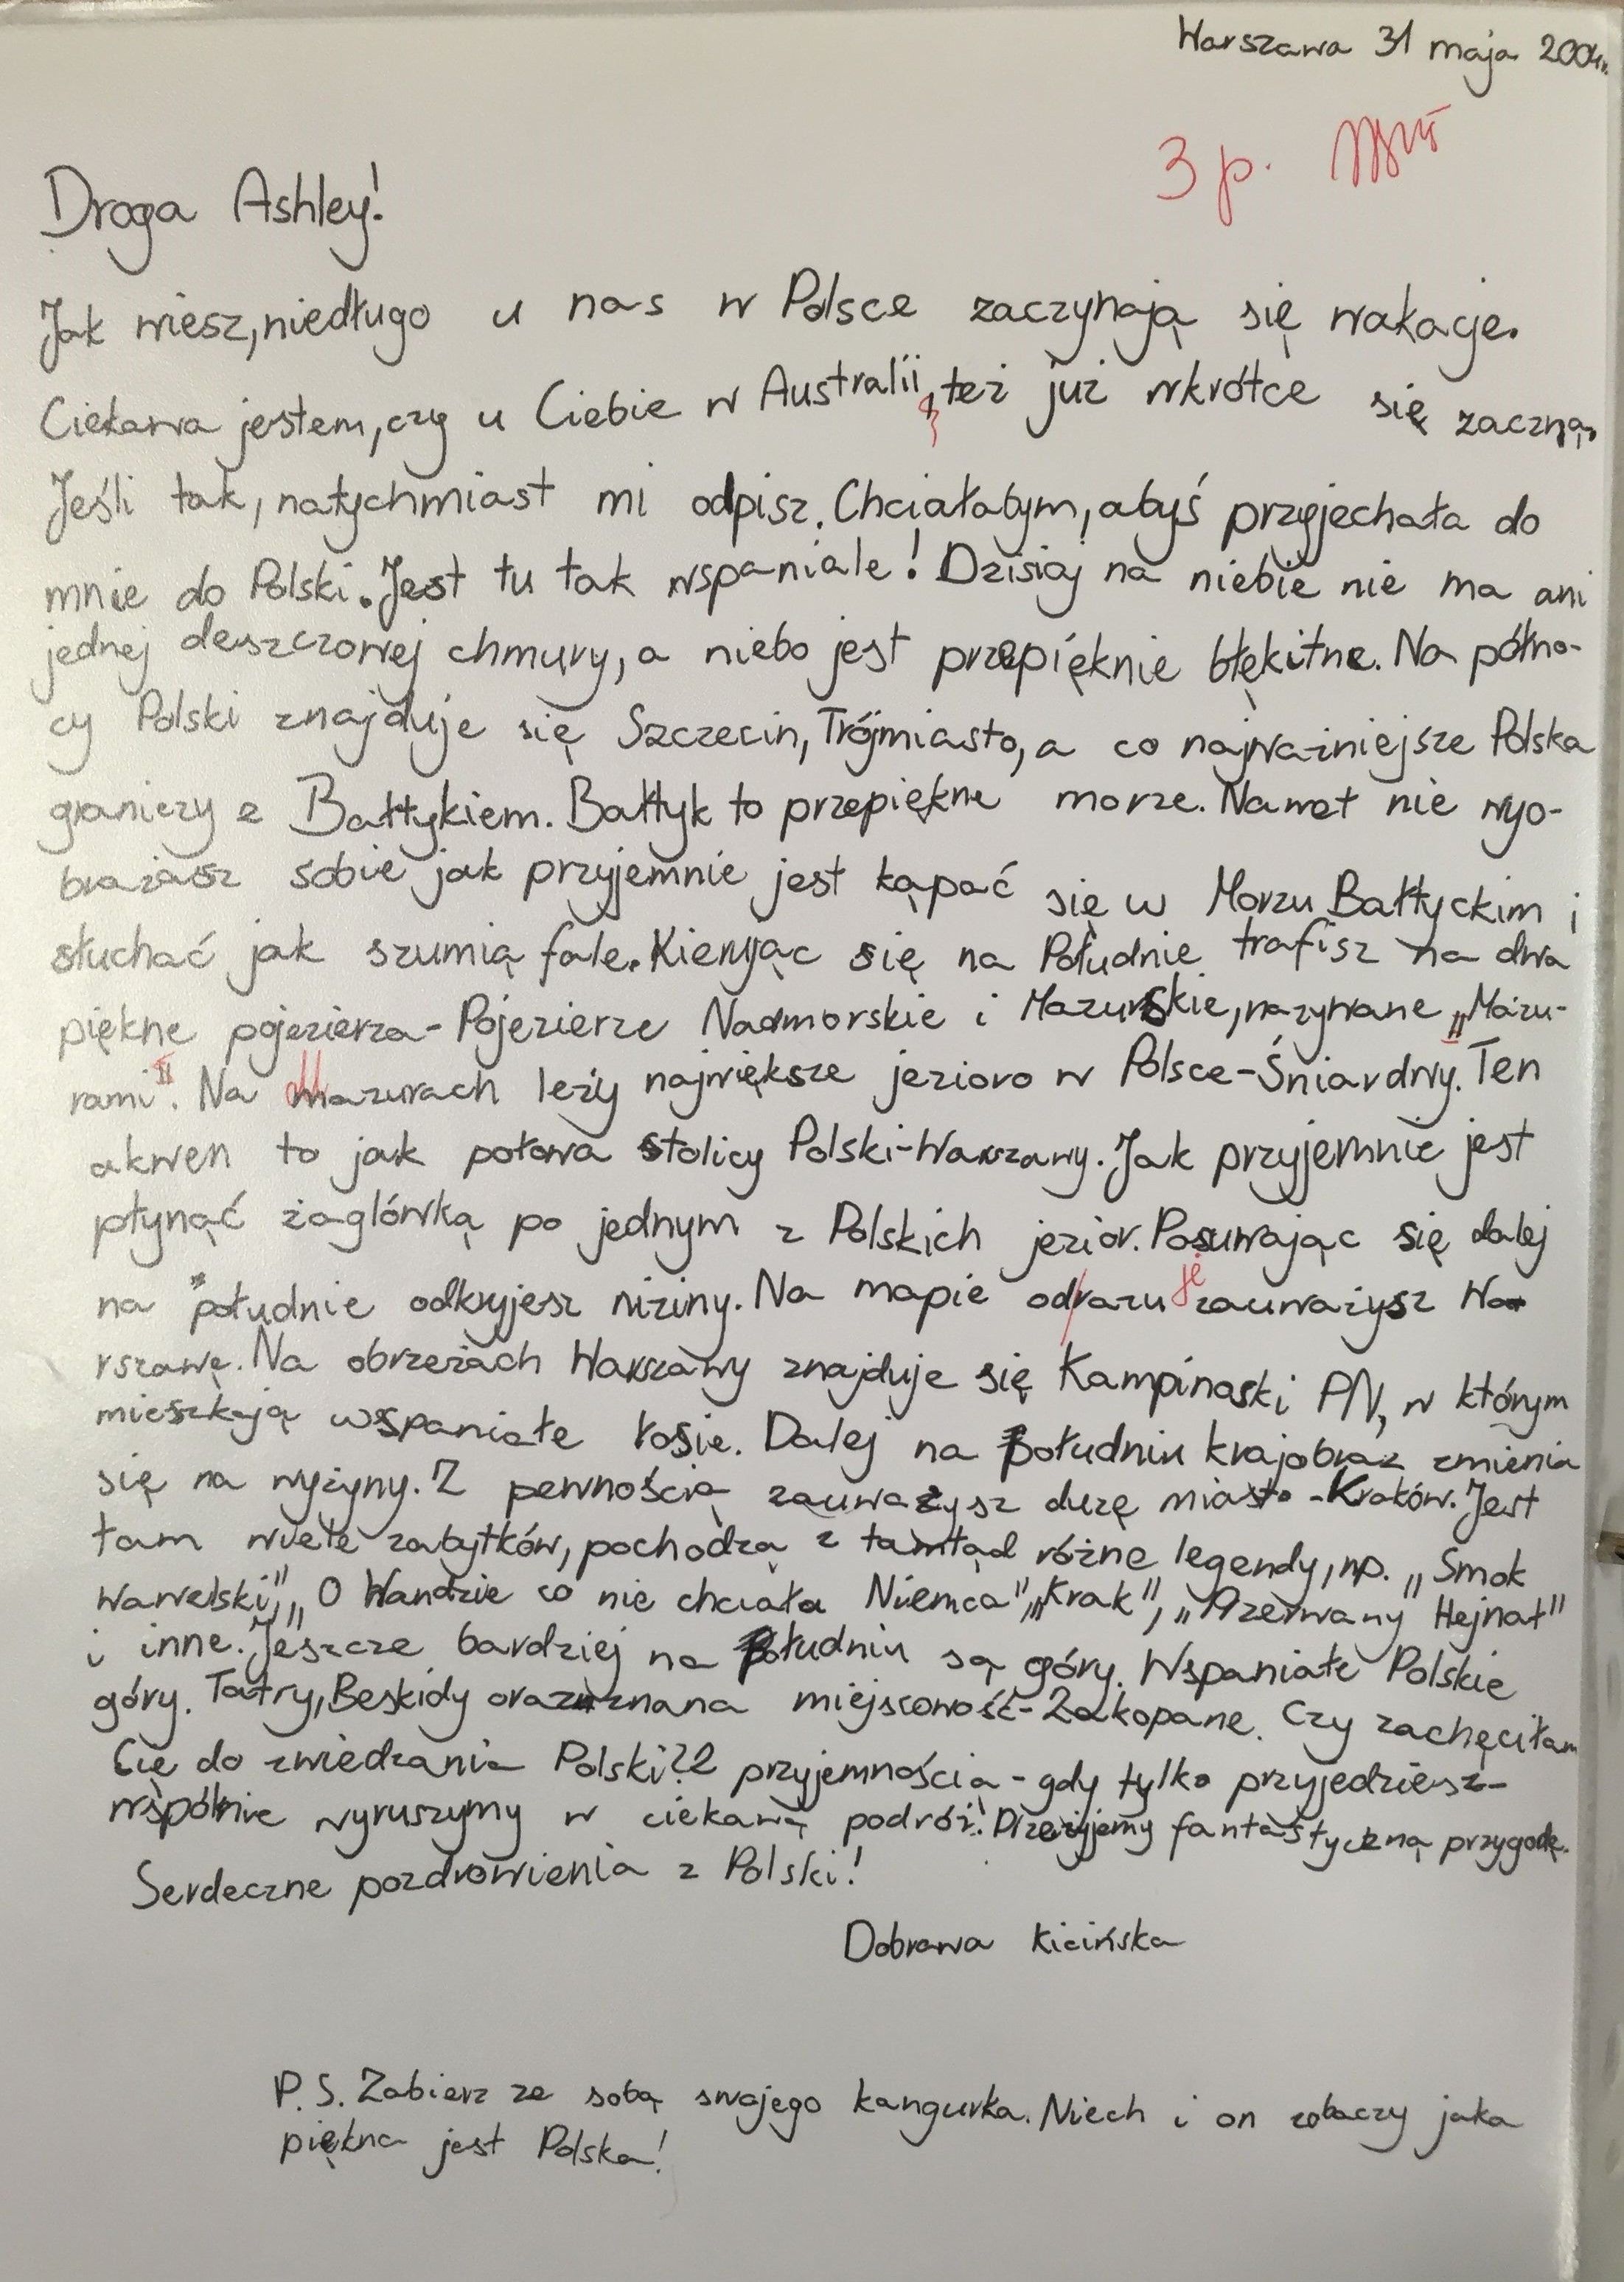 Warszawa 31 maja 2004r.
3 p.
Droga Ashley!
Jak wiesz, niedługo u nas w Polsce zaczynają się wakacje.
Ciekawa jestem, czy u Ciebie w Australii, też już wkrótce się zaczną.
Jeśli tak, natychmiast mi odpisz. Chciałabym, abyś przyjechała do
mnie do Polski. Jest tu tak wspaniale! Dzisiaj na niebie nie ma ani
jednej deszczowej chmury, a niebo jest przepięknie błękitne. Na półno-
cy Polski znajduje się Szczecin, Trójmiasto, a co najważniejsze Polska
graniczy z Bałtykiem. Bałtyk to przepiękne morze. Nawet nie wyo-
brażasz sobie jak przyjemnie jest kąpać się w Morzu Bałtyckim i
słuchać jak szumią fale. Kierując się na Południe trafisz na dwa
piękne pojezierza - Pojezierze Nadmorskie i Mazurskie, nazywane „Mazu-
rami". Na Mazurach leży największe jezioro w Polsce - Śniardwy. Ten
akwen to jak połowa stolicy Polski - Warszawy. Jak przyjemnie jest
płynąć żaglówką po jednym z Polskich jezior. Posuwając się dalej
na południe odkryjesz niziny. Na mapie od/razu je zauważysz Wa-
rszawę. Na obrzeżach Warszawy znajduje się Kampinoski PN, w którym
mieszkają wspaniałe łosie. Dalej na Południu krajobraz zmienia
się na wyżyny. Z pewnością zauważysz duże miasto - Kraków. Jest
tam wiele zabytków, pochodzą z tamtąd różne legendy, np. „Smok
Wawelski", „O Wandzie co nie chciała Niemca", „Krak", „Przerwany Hejnał"
i inne. Jeszcze bardziej na Południu są góry. Wspaniałe Polskie
góry. Tatry, Beskidy oraz znana miejscowość - Zakopane. Czy zachęciłam
Cię do zwiedzania Polski? Z przyjemnością - gdy tylko przyjedziesz -
wspólnie wyruszymy w ciekawą podróż! Przeżyjemy fantastyczną przygodę.
Serdeczne pozdrowienia z Polski!
Dobrawa Kicińska
P.S. Zabierz ze sobą swojego kangurka. Niech i on zobaczy jaka
piękna jest Polska!